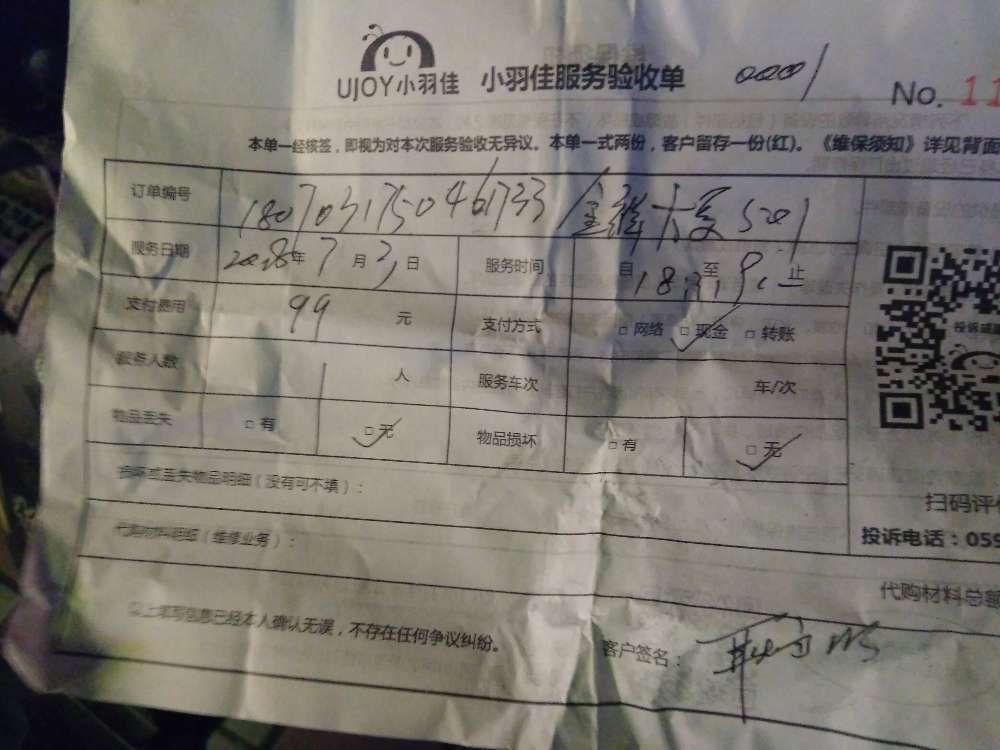 UJOY小羽佳 小羽佳服务验收单 0001
No. 11
本单一经核签，即视为对本次服务验收无异议。本单一式两份，客户留存一份(红)。《维保须知》详见背面
订单编号 180703175046733
501
服务日期 2018年7月3日 服务时间 自18:3至9:止
支付费用 99元 支付方式 □网络 □现金 □转账
服务人数 1人 服务车次 车/次
物品丢失 □有 □无 物品损坏 □有 □无
损坏或丢失物品明细（没有可不填）：
代购材料明细（维修业务）：
以上填写信息已经本人确认无误，不存在任何争议纠纷。
客户签名：
扫码评价
投诉电话：059
代购材料总额